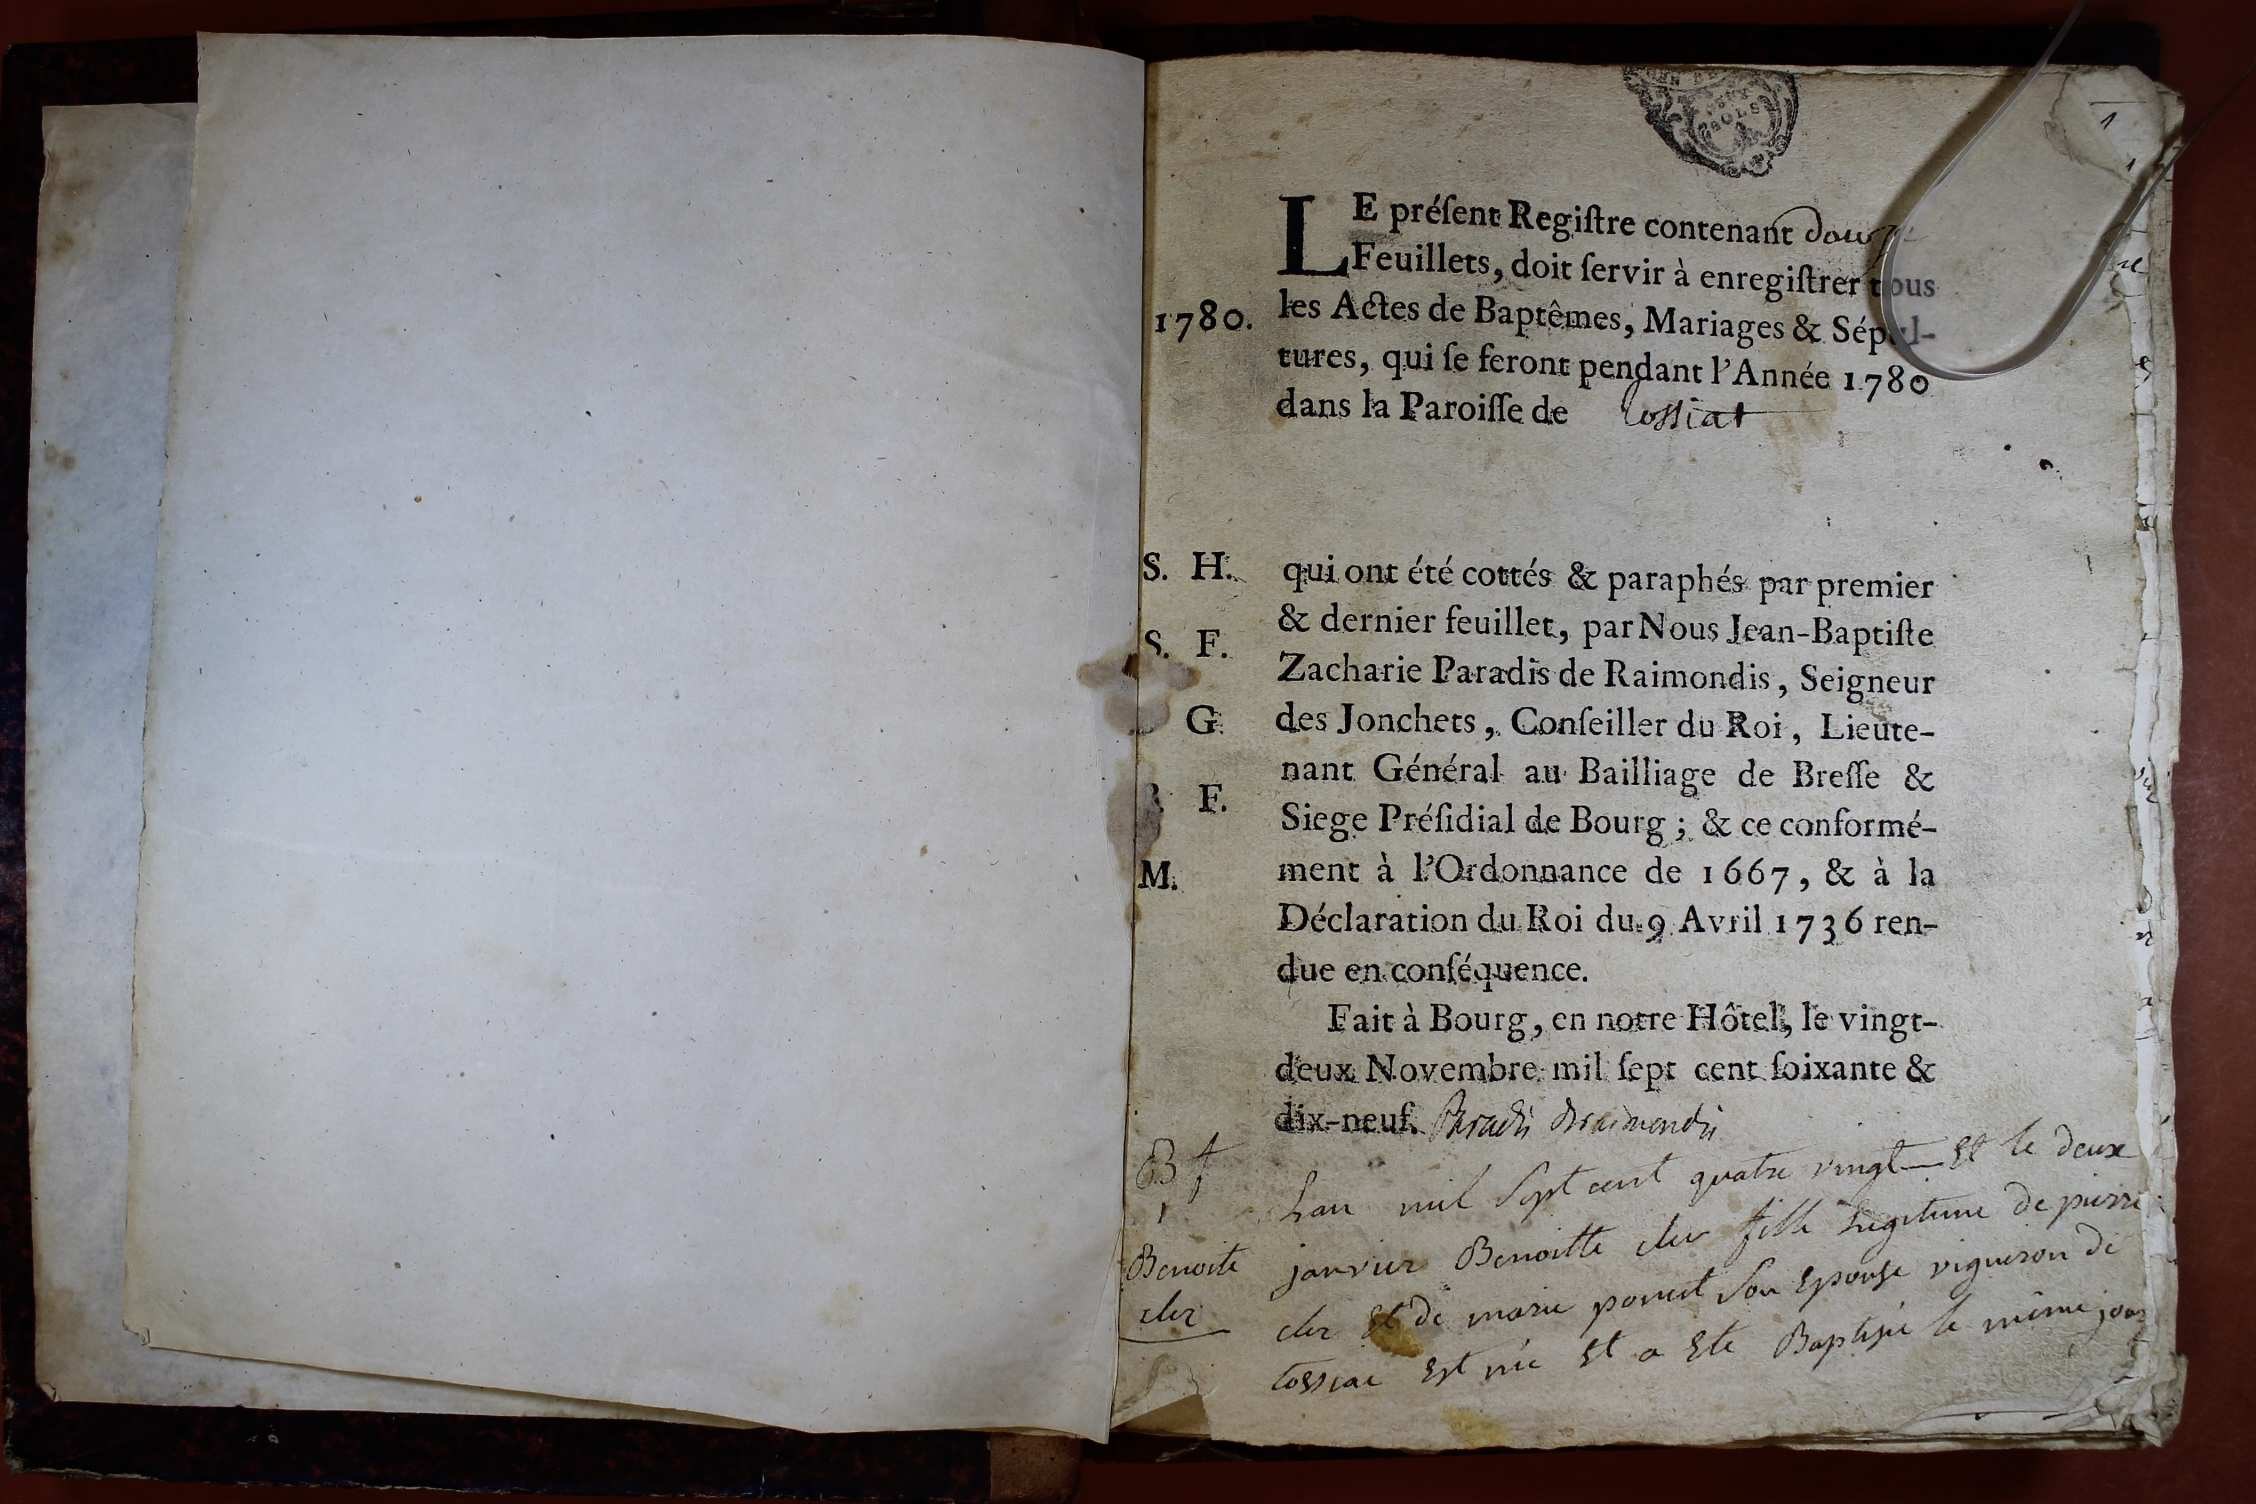 1
DEUX
SOLS
LE préſent Regiſtre contenant douze
Feuillets, doit ſervir à enregiſtrer tous
1780. les Actes de Baptêmes, Mariages & Sépul-
tures, qui ſe feront pendant l'Année 1780
dans la Paroiſſe de Cossiat
S. H. qui ont été cottés & paraphés par premier
& dernier feuillet, par Nous Jean-Baptiſte
S. F. Zacharie Paradis de Raimondis, Seigneur
G. des Jonchets, Conſeiller du Roi, Lieute-
nant Général au Bailliage de Breſſe &
F. Siege Préſidial de Bourg; & ce conformé-
M. ment à l'Ordonnance de 1667, & à la
Déclaration du Roi du 9 Avril 1736 ren-
due en conſéquence.
Fait à Bourg, en notre Hôtel, le vingt-
deux Novembre mil ſept cent ſoixante &
dix-neuf. Paradis Deraimondis
B
1
Benoite
cler
Lan mil Sept cent quatre vingt Et le deux
janvier Benoitte cler fille Legitime de pierre
cler Et de marie ponut Son Epouse vigneron de
Cossiat Est née Et a Eté Baptisée le même jour